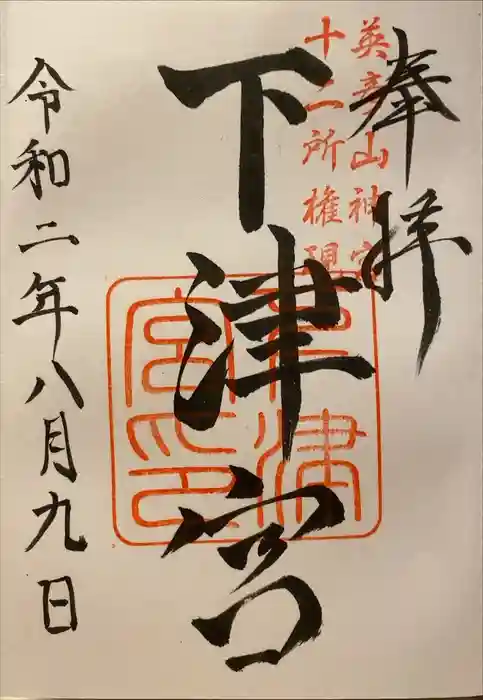 奉拝
英彦山神宮
十二所権現
下津宮
下津宮印
令和二年八月九日